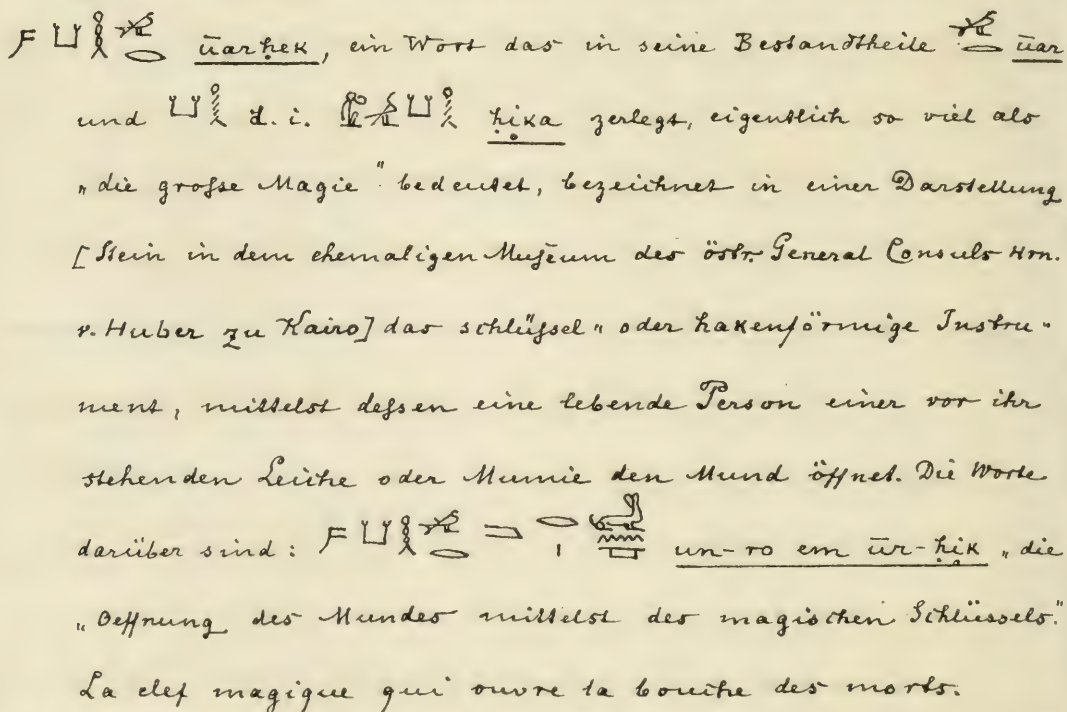 ūarḥek, ein Wort das in seine Bestandtheile ūar
und d. i. ḥika zerlegt, eigentlich so viel als
„die große Magie" bedeutet, bezeichnet in einer Darstellung
[Stein in dem ehemaligen Mußeum des östr. General Consuls Hrn.
v. Huber zu Kairo] das schlüßel„ oder hakenförmige Instru„
ment, mittelst deßen eine lebende Person einer vor ihr
stehenden Leiche oder Mumie den Mund öffnet. Die Worte
darüber sind: un-ro em ūr-ḥik „die
„Oeffnung des Mundes mittelst des magischen Schlüssels."
La clef magique qui ouvre la bouche des morts.